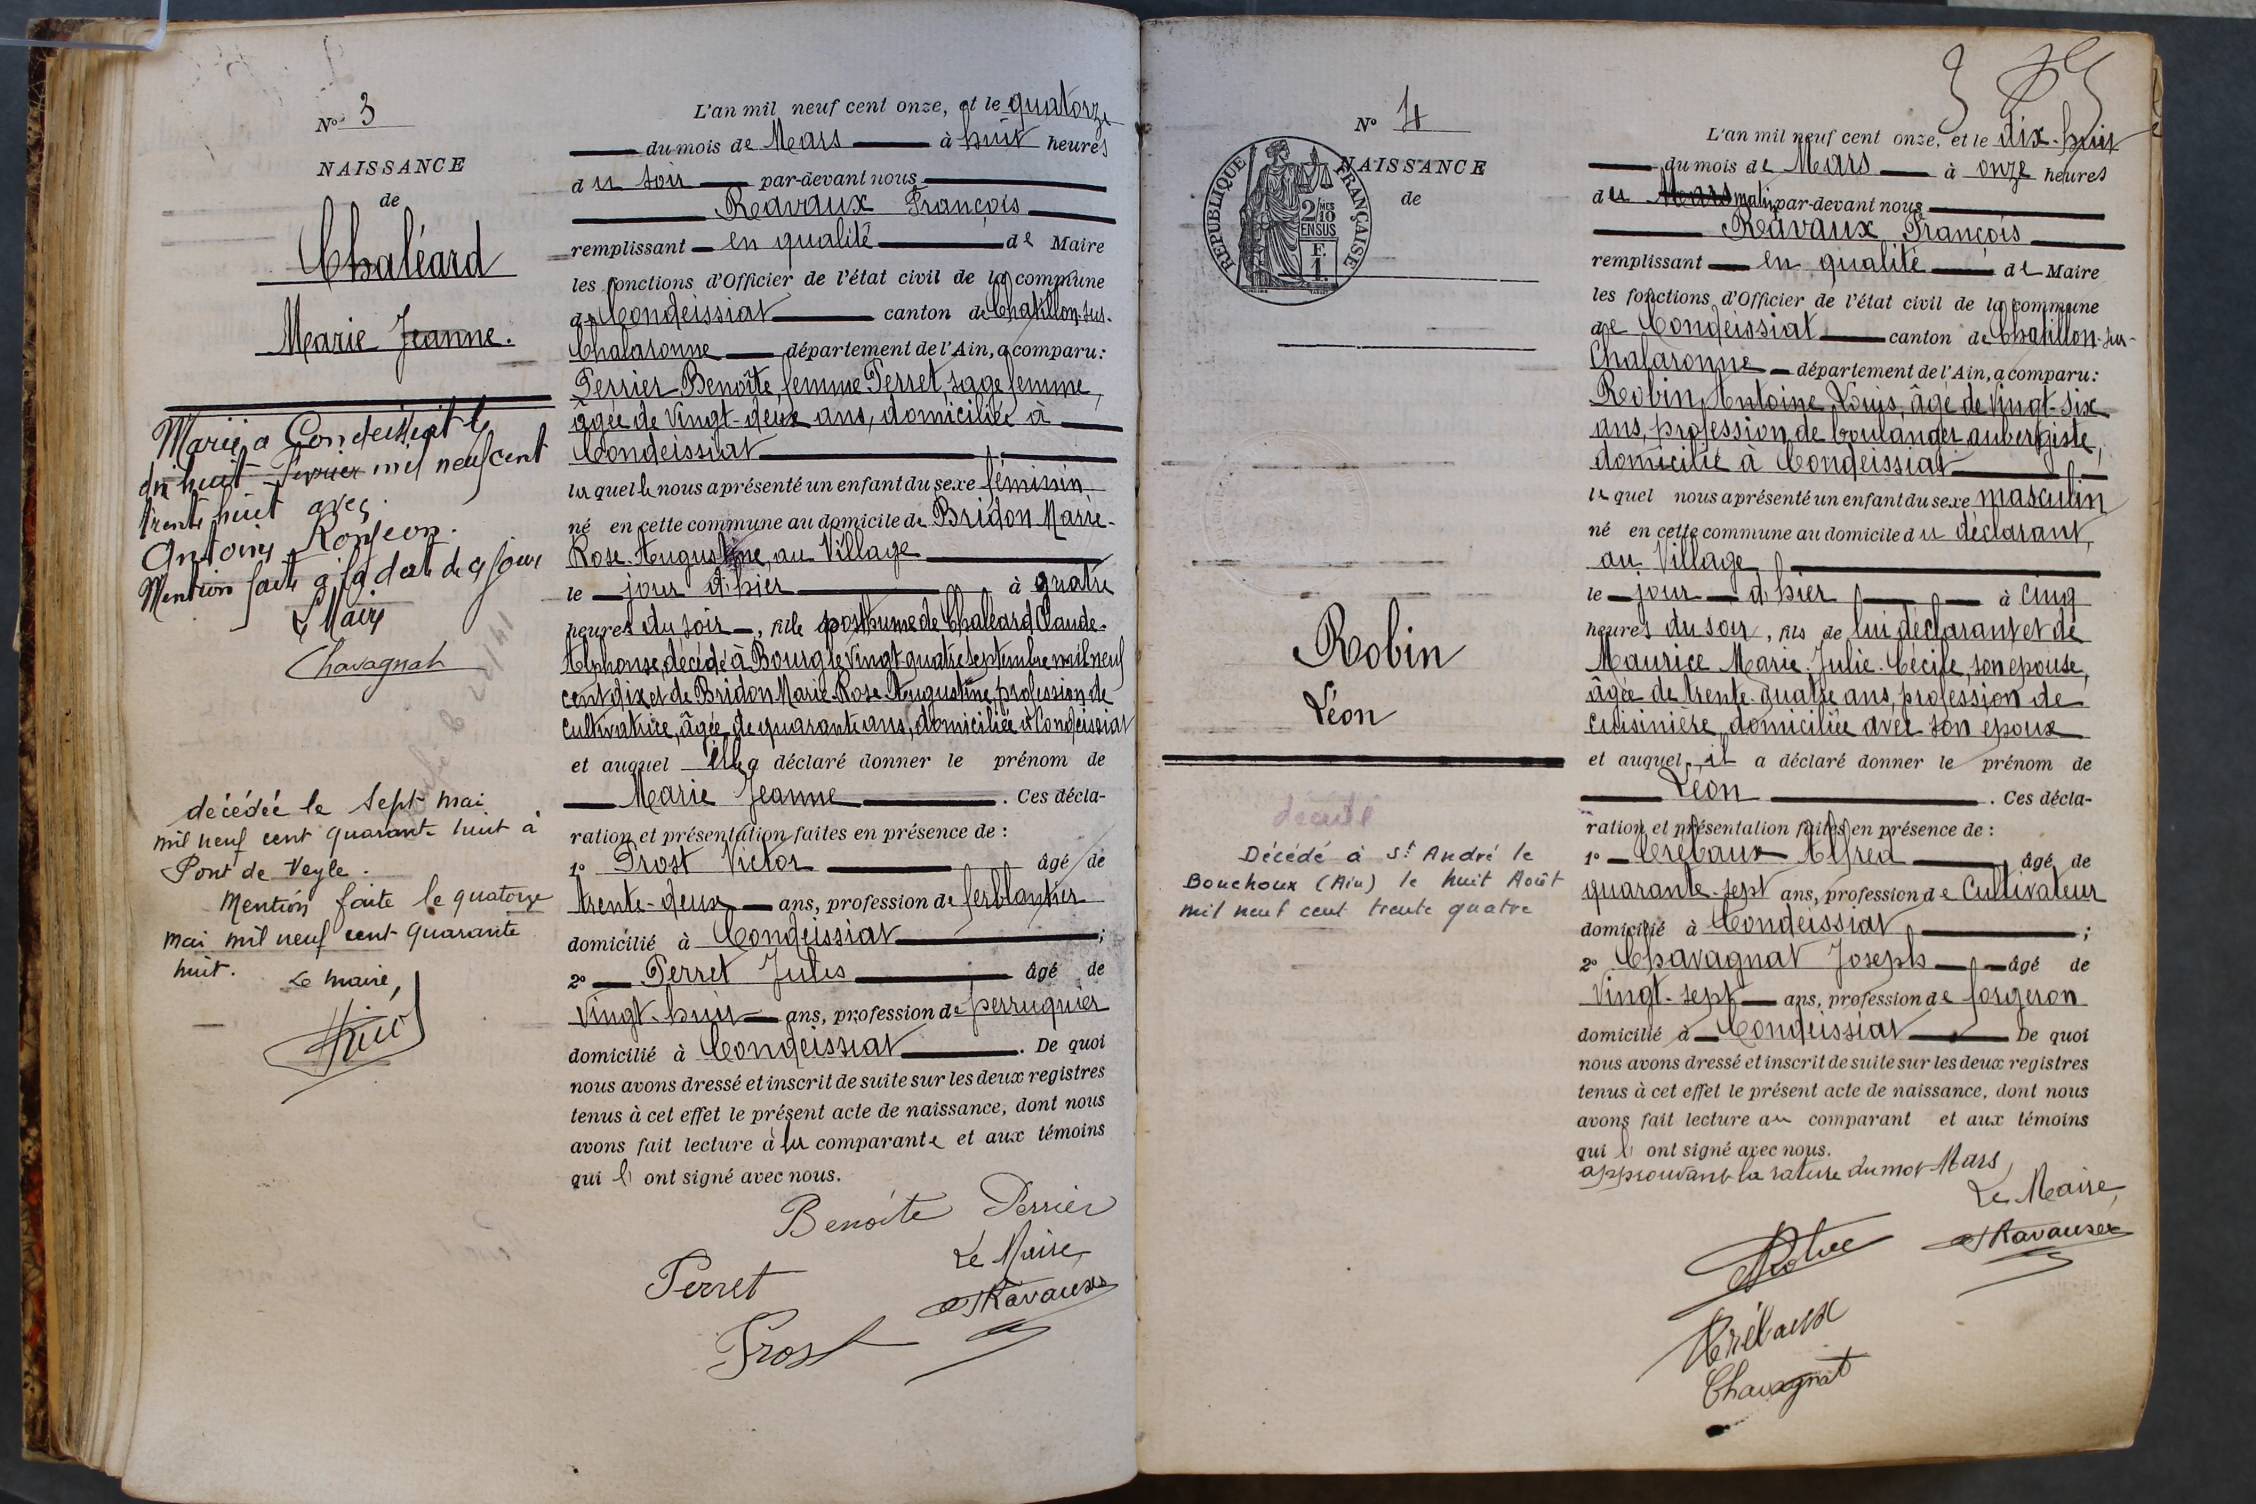 N° 3
NAISSANCE
de
Chaléard
Marie Jeanne.
Marié a Condeissiat le
dix huit février mil neuf cent
trente huit avec
Antoine Ronjeon.
Mention faite à la date de ce jour
Le Maire
Chavagnat
décédée le sept mai
mil neuf cent quarante huit à
Pont de Veyle.
Mention faite le quatorze
mai mil neuf cent quarante
huit.
Le maire,
L'an mil neuf cent onze, et le quatorze
du mois de Mars à huit heures
du soir par-devant nous
Ravaux François
remplissant en qualité de Maire
les fonctions d'Officier de l'état civil de la commune
de Condeissiat canton de Chatillon-sur-
Chalaronne département de l'Ain, a comparu:
Perrier Benoîte, femme Perret, sage femme,
âgée de Vingt-deux ans, domiciliée à
Condeissiat
laquelle nous a présenté un enfant du sexe féminin
né en cette commune au domicile de Bridon Marie-
Rose-Augustine, au Village
le jour d'hier à quatre
heures du soir, fille posthume de Chaléard Claude-
Alphonse, décédé à Bourg le Vingt quatre septembre mil neuf
cent dix et de Bridon Marie-Rose-Augustine, profession de
cultivatrice, âgée de quarante ans, domiciliée à Condeissiat
et auquel Elle a déclaré donner le prénom de
Marie Jeanne . Ces décla-
ration et présentation faites en présence de :
1° Prost Victor âgé de
trente-deux ans, profession de ferblantier
domicilié à Condeissiat ;
2° Perret Jules âgé de
Vingt-huit ans, profession de perruquier
domicilié à Condeissiat . De quoi
nous avons dressé et inscrit de suite sur les deux registres
tenus à cet effet le présent acte de naissance, dont nous
avons fait lecture à la comparante et aux témoins
qui l ont signé avec nous.
Benoîte Perrier
Le Maire,
Perret
Ravaux
Prost
3
N° 4
NAISSANCE
de
RÉPUBLIQUE FRANÇAISE
2/MES
10
EN SUS
F.
1.
Robin
Léon
décédé
Décédé à St André le
Bouchoux (Ain) le huit Août
mil neuf cent trente quatre
L'an mil neuf cent onze, et le dix-huit
du mois de Mars à onze heures
du Mars matin par-devant nous
Ravaux François
remplissant en qualité de Maire
les fonctions d'Officier de l'état civil de la commune
de Condeissiat canton de Chatillon-sur-
Chalaronne département de l'Ain, a comparu:
Robin Antoine Louis, âgé de Vingt-six
ans, profession de boulanger aubergiste,
domicilié à Condeissiat
lequel nous a présenté un enfant du sexe masculin
né en cette commune au domicile du déclarant,
au Village
le jour d'hier à cinq
heures du soir, fils de lui déclarant et de
Maurice Marie-Julie-Cécile, son épouse,
âgée de trente-quatre ans, profession de
cuisinière, domiciliée avec son époux
et auquel il a déclaré donner le prénom de
Léon . Ces décla-
ration et présentation faites en présence de :
1° Crébaux Alfred, âgé de
quarante-sept ans, profession de Cultivateur
domicilié à Condeissiat ;
2° Chavagnat Joseph âgé de
Vingt-sept ans, profession de forgeron
domicilié à Condeissiat De quoi
nous avons dressé et inscrit de suite sur les deux registres
tenus à cet effet le présent acte de naissance, dont nous
avons fait lecture au comparant et aux témoins
qui l ont signé avec nous.
approuvant la rature du mot Mars,
Le Maire,
Ravaux
Crébaux
Chavagnat